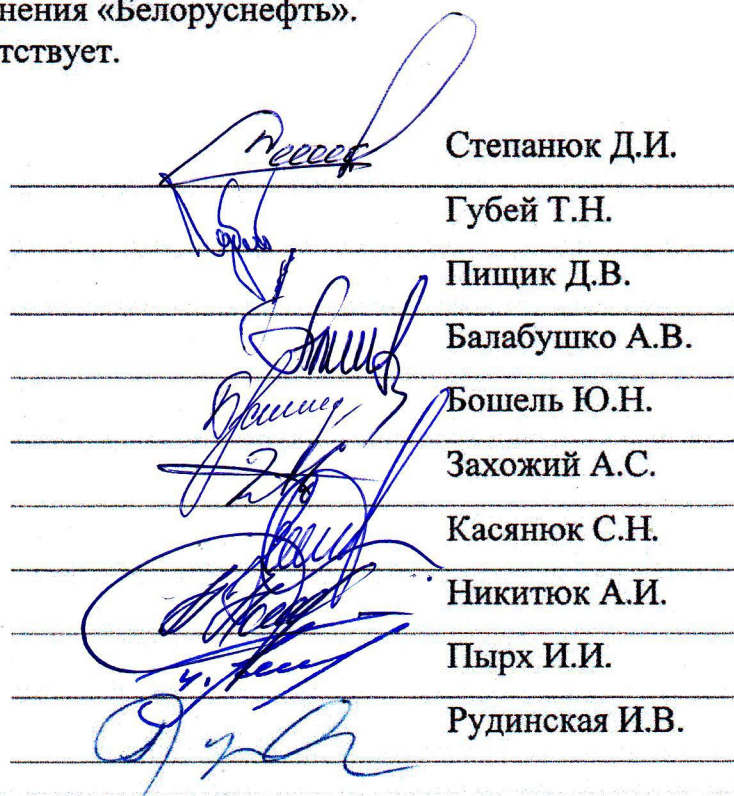 нения «Белоруснефть».
тствует.
Степанюк Д.И.
Губей Т.Н.
Пищик Д.В.
Балабушко А.В.
Бошель Ю.Н.
Захожий А.С.
Касянюк С.Н.
Никитюк А.И.
Пырх И.И.
Рудинская И.В.